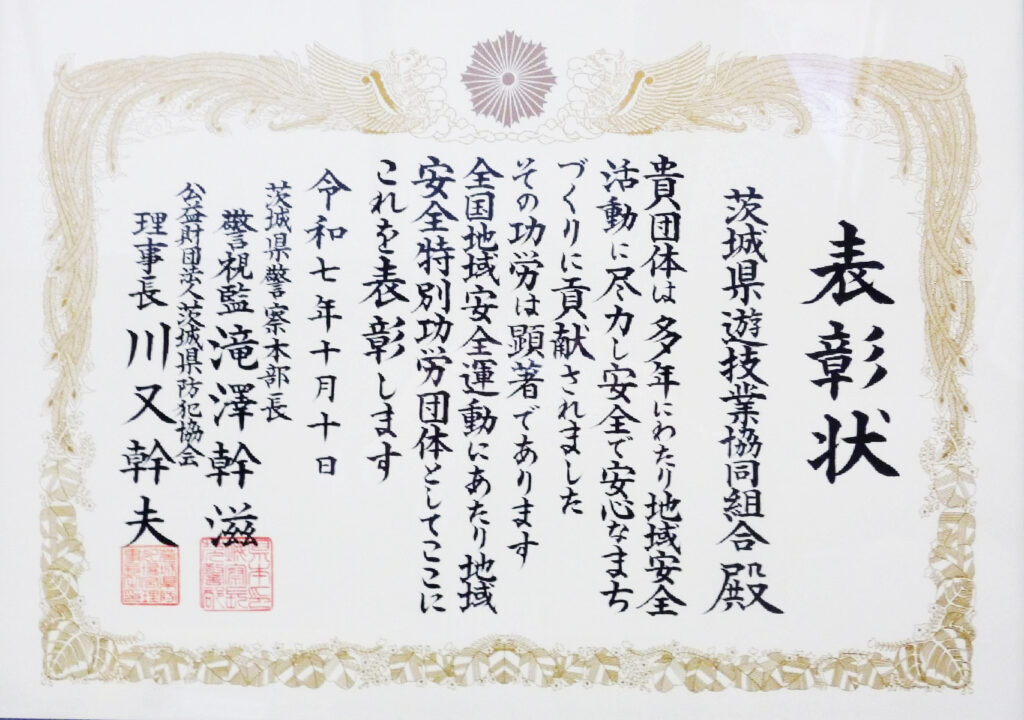 表彰状
茨城県遊技業協同組合殿
貴団体は多年にわたり地域安全
活動に尽力し安全で安心なまち
づくりに貢献されました
その功労は顕著であります
全国地域安全運動にあたり地域
安全特別功労団体としてここに
これを表彰します
令和七年十月十日
茨城県警察本部長
警視監滝澤幹滋
公益財団法人茨城県防犯協会
理事長川又幹夫